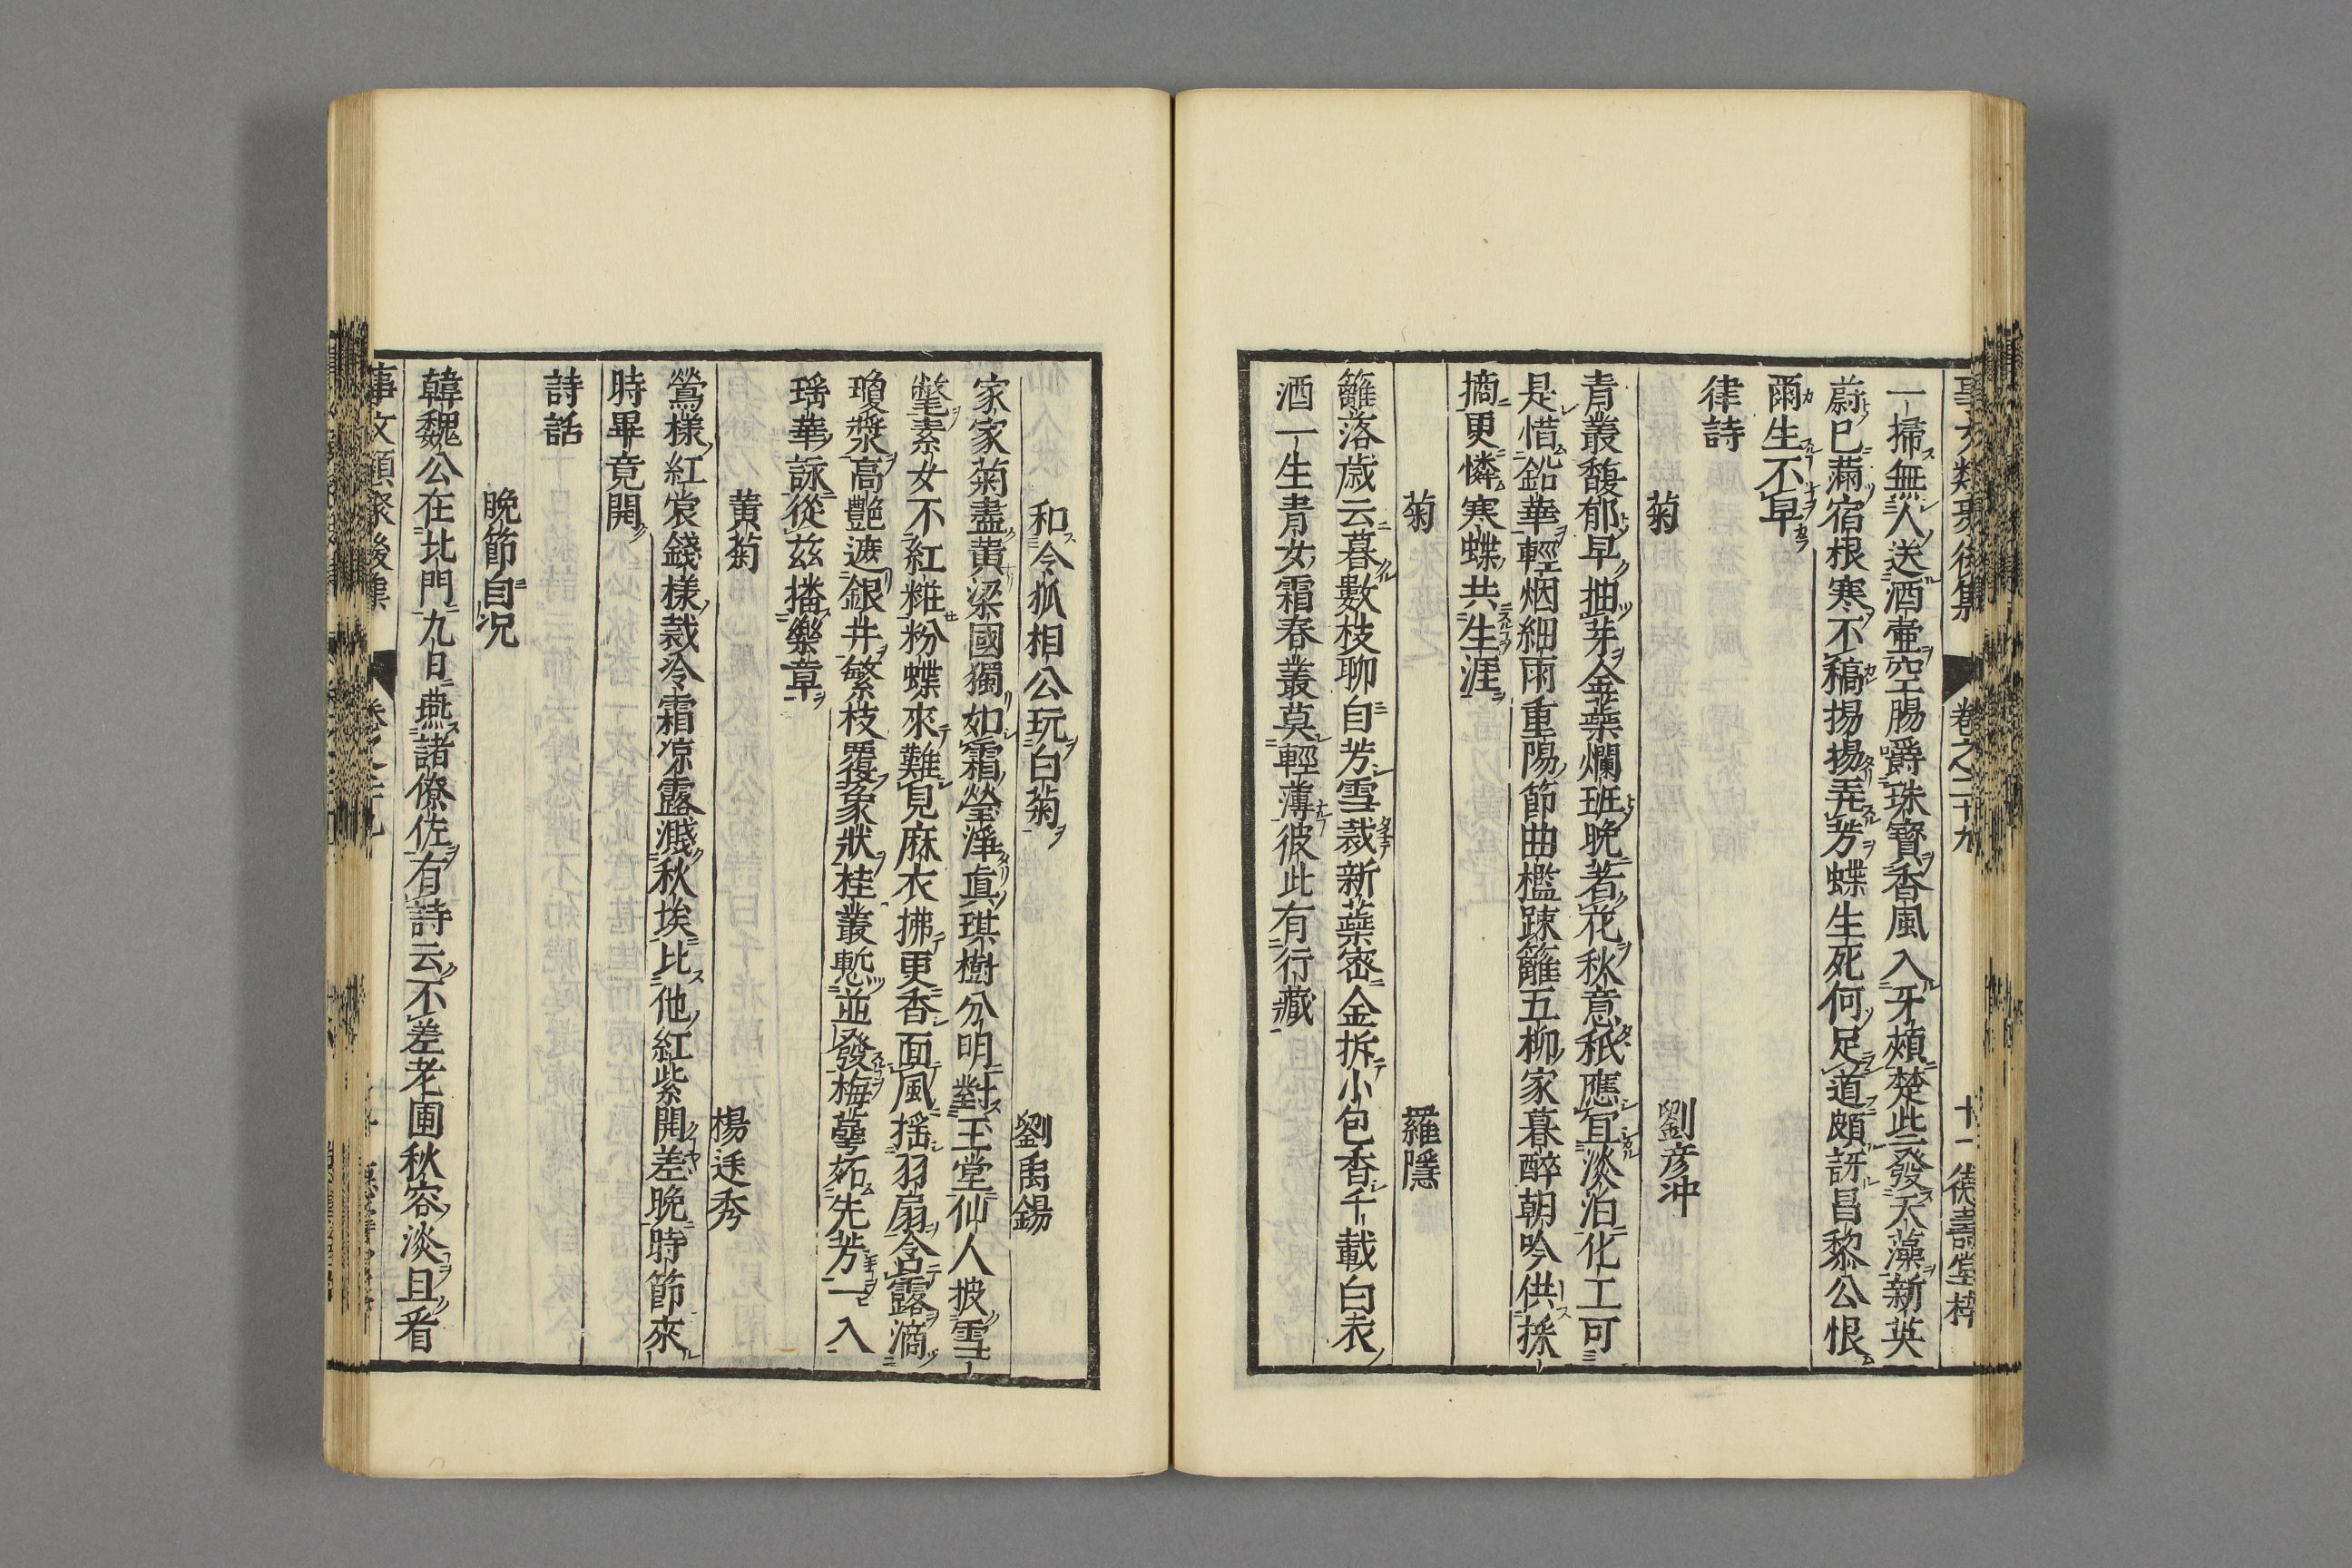 事文類聚後集 卷之二十九 十一 德壽堂梓
一掃無人送酒壷空腸嚼珠寳香風入牙頰楚些發天藻新英
蔚已滿宿根寒不稿揚揚弄芳蝶生死何足道頗訝昌黎公恨
爾生不早
律詩
菊 劉彦冲
青叢馥郁早抽芽金蘂爛班晩著花秋意秪應宜淡泊化工可
是惜鉛華輕烟細雨重陽節曲檻踈籬五柳家暮醉朝吟供採
摘更憐寒蝶共生涯
菊 羅隱
籬落歳云暮數枝聊自芳雪裁新蘂宻金拆小包香千載白衣
酒一生青女霜春叢莫輕薄彼此有行藏
和令狐相公玩白菊 劉禹錫
家家菊盡黄梁國獨如霜瑩淨真琪樹分明對玉堂仙人披雪
氅素女不紅粧粉蝶來難見麻衣拂更香靣風揺羽扇含露滴
瓊漿高艶遮銀井繁枝覆象狀桂叢慙並發梅蘂妬先芳一入
瑶華詠從兹播樂章
黄菊 楊廷秀
鶯樣紅裳錢樣裁冷霜凉露濺秋埃比他紅紫開差晩時節來
時畢竟開
詩話
晩節自况
韓魏公在北門九日燕諸僚佐有詩云不差老圃秋容淡且看
事文類聚後集